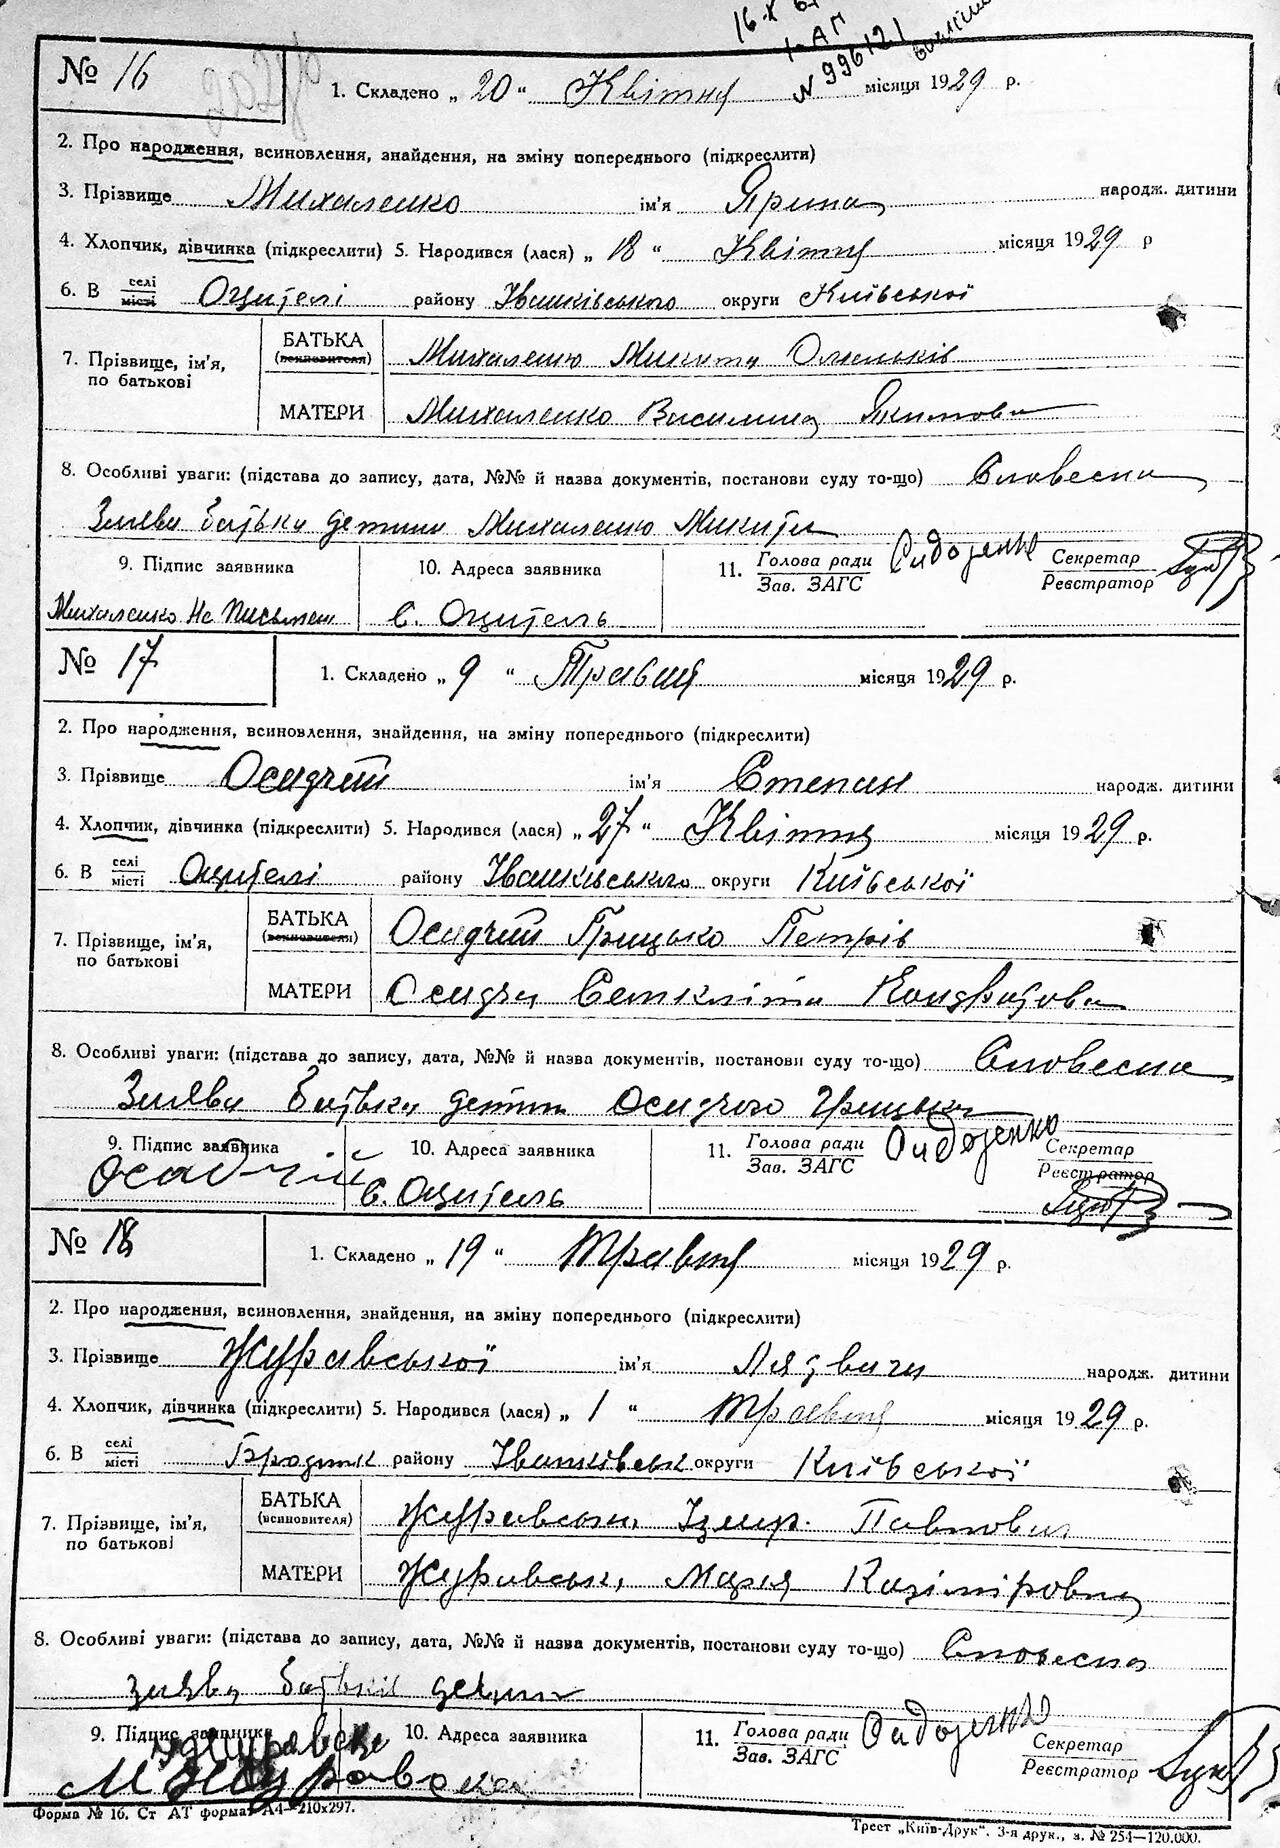 16·X
№ 996121
№ 16
1. Складено „ 20 “ Квітня місяця 1929 р.
2. Про народження, всиновлення, знайдення, на зміну попереднього (підкреслити)
3. Прізвище Михаленко ім'я Ярина народж. дитини
4. Хлопчик, дівчинка (підкреслити) 5. Народився (лася) „ 18 “ Квітня місяця 1929 р
6. В селі місті Оцителі району Іванківського округи Київської
7. Прізвище, ім'я, по батькові
БАТЬКА (всиновителя) Михаленко Микита
МАТЕРИ Михаленко Василина Якимова
8. Особливі уваги: (підстава до запису, дата, №№ й назва документів, постанови суду то-що) Словесна
Заява батька дитини Михаленко Микити
9. Підпис заявника 10. Адреса заявника 11. Голова ради Зав. ЗАГС Секретар Реєстратор
Михаленко Не письмен с. Оцитель
№ 17
1. Складено „ 9 “ Травня місяця 1929 р.
2. Про народження, всиновлення, знайдення, на зміну попереднього (підкреслити)
3. Прізвище Осидчий ім'я Степан народж. дитини
4. Хлопчик, дівчинка (підкреслити) 5. Народився (лася) „ 27 “ Квітня місяця 1929 р.
6. В селі місті Оцителі району Іванківського округи Київської
7. Прізвище, ім'я, по батькові
БАТЬКА (всиновителя) Осидчий Грицько Петрів
МАТЕРИ Осидча Кондратова
8. Особливі уваги: (підстава до запису, дата, №№ й назва документів, постанови суду то-що) Словесна
Заява батька дитини Осидчого Грицька
9. Підпис заявника 10. Адреса заявника 11. Голова ради Зав. ЗАГС Секретар Реєстратор
Осадчий с. Оцитель
№ 18
1. Складено „ 19 “ Травня місяця 1929 р.
2. Про народження, всиновлення, знайдення, на зміну попереднього (підкреслити)
3. Прізвище Журавської ім'я народж. дитини
4. Хлопчик, дівчинка (підкреслити) 5. Народився (лася) „ 1 “ Травня місяця 1929 р.
6. В селі місті району Іванківськ округи Київської
7. Прізвище, ім'я, по батькові
БАТЬКА (всиновителя) Павлович
МАТЕРИ Марія Казіміровна
8. Особливі уваги: (підстава до запису, дата, №№ й назва документів, постанови суду то-що) Словесна
заява дитини
9. Підпис заявника 10. Адреса заявника 11. Голова ради Зав. ЗАГС Секретар Реєстратор
Форма № 16. Ст АТ формат А4—210х297.
Трест „Київ-Друк“. 3-я друк., з. № 254—120.000.